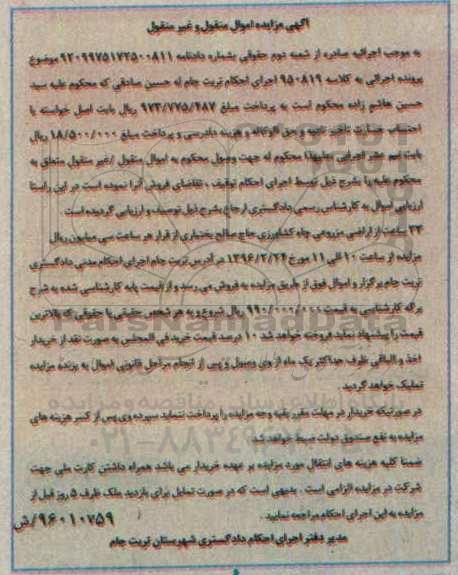 آگهی مزایده اموال منقول و غیر منقول
به موجب اجرائیه صادره از شعبه دوم حقوقی بشماره دادنامه ۹۲۰۹۹۷۵۱۷۲۵۰۰۸۱۱ موضوع
پرونده اجرائی به کلاسه ۹۵۰۸۱۹ اجرای احکام تربت جام له حسین صادقی که محکوم علیه سید
حسین هاشم زاده محکوم است به پرداخت مبلغ ۹۷۳/۷۷۵/۴۸۷ ریال بابت اصل خواسته با
احتساب خسارت تاخیر تادیه و حق الوکاله و هزینه دادرسی و پرداخت مبلغ ۱۸/۵۰۰/۰۰۰ ریال
بابت نیم عشر اجرایی محکوم له جهت وصول محکوم به اموال منقول /غیر منقول متعلق به
محکوم علیه را بشرح ذیل توسط اجرای احکام توقیف ، تقاضای فروش آنرا نموده است در این راستا
ارزیابی اموال به کارشناس رسمی دادگستری ارجاع بشرح ذیل توصیف و ارزیابی گردیده است .
۳۳ ساعت از اراضی مزروعی چاه کشاورزی حاج صالح بختیاری از قرار هر ساعت سی میلیون ریال
مزایده از ساعت ۱۰ الی ۱۱ مورخ ۱۳۹۶/۲/۲۴ در آدرس تربت جام اجرای احکام مدنی دادگستری
تربت جام برگزار و اموال فوق از طریق مزایده به فروش می رسد و از قیمت پایه کارشناسی شده به شرح
برگه کارشناسی به قیمت ۹۹۰/۰۰۰/۰۰۰ ریال شروع و به هر شخص حقیقی یا حقوقی که بالاترین
قیمت را پیشنهاد نماید فروخته خواهد شد ۱۰ درصد قیمت خرید فی المجلس به صورت نقد از خریدار
اخذ و الباقی ظرف حداکثر یک ماه از وی وصول و پس از انجام مراحل قانونی اموال به برنده مزایده
تملیک خواهد گردید .
در صورتیکه خریدار در مهلت مقرر بقیه وجه مزایده را پرداخت ننماید سپرده وی پس از کسر هزینه های
مزایده به نفع صندوق دولت ضبط خواهد شد.
ضمنا کلیه هزینه های انتقال مورد مزایده بر عهده خریدار می باشد همراه داشتن کارت ملی جهت
شرکت در مزایده الزامی است . بدیهی است که در صورت تمایل برای بازدید ملک ظرف ۵ روز قبل از
مزایده به این اجرای احکام مراجعه نمایید .
۹۶۰۱۰۷۵۹/ش
مدیر دفتر اجرای احکام دادگستری شهرستان تربت جام
ParsNamadData
پایگاه اطلاع رسانی مناقصه و مزایده
۰۲۱-۸۸۳۴۹۶۷۰